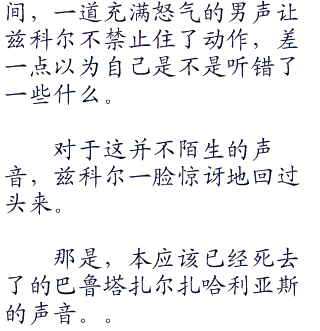 间，一道充满怒气的男声让
兹科尔不禁止住了动作，差
一点以为自己是不是听错了
一些什么。
对于这并不陌生的声
音，兹科尔一脸惊讶地回过
头来。
那是，本应该已经死去
了的巴鲁塔扎尔扎哈利亚斯
的声音。。